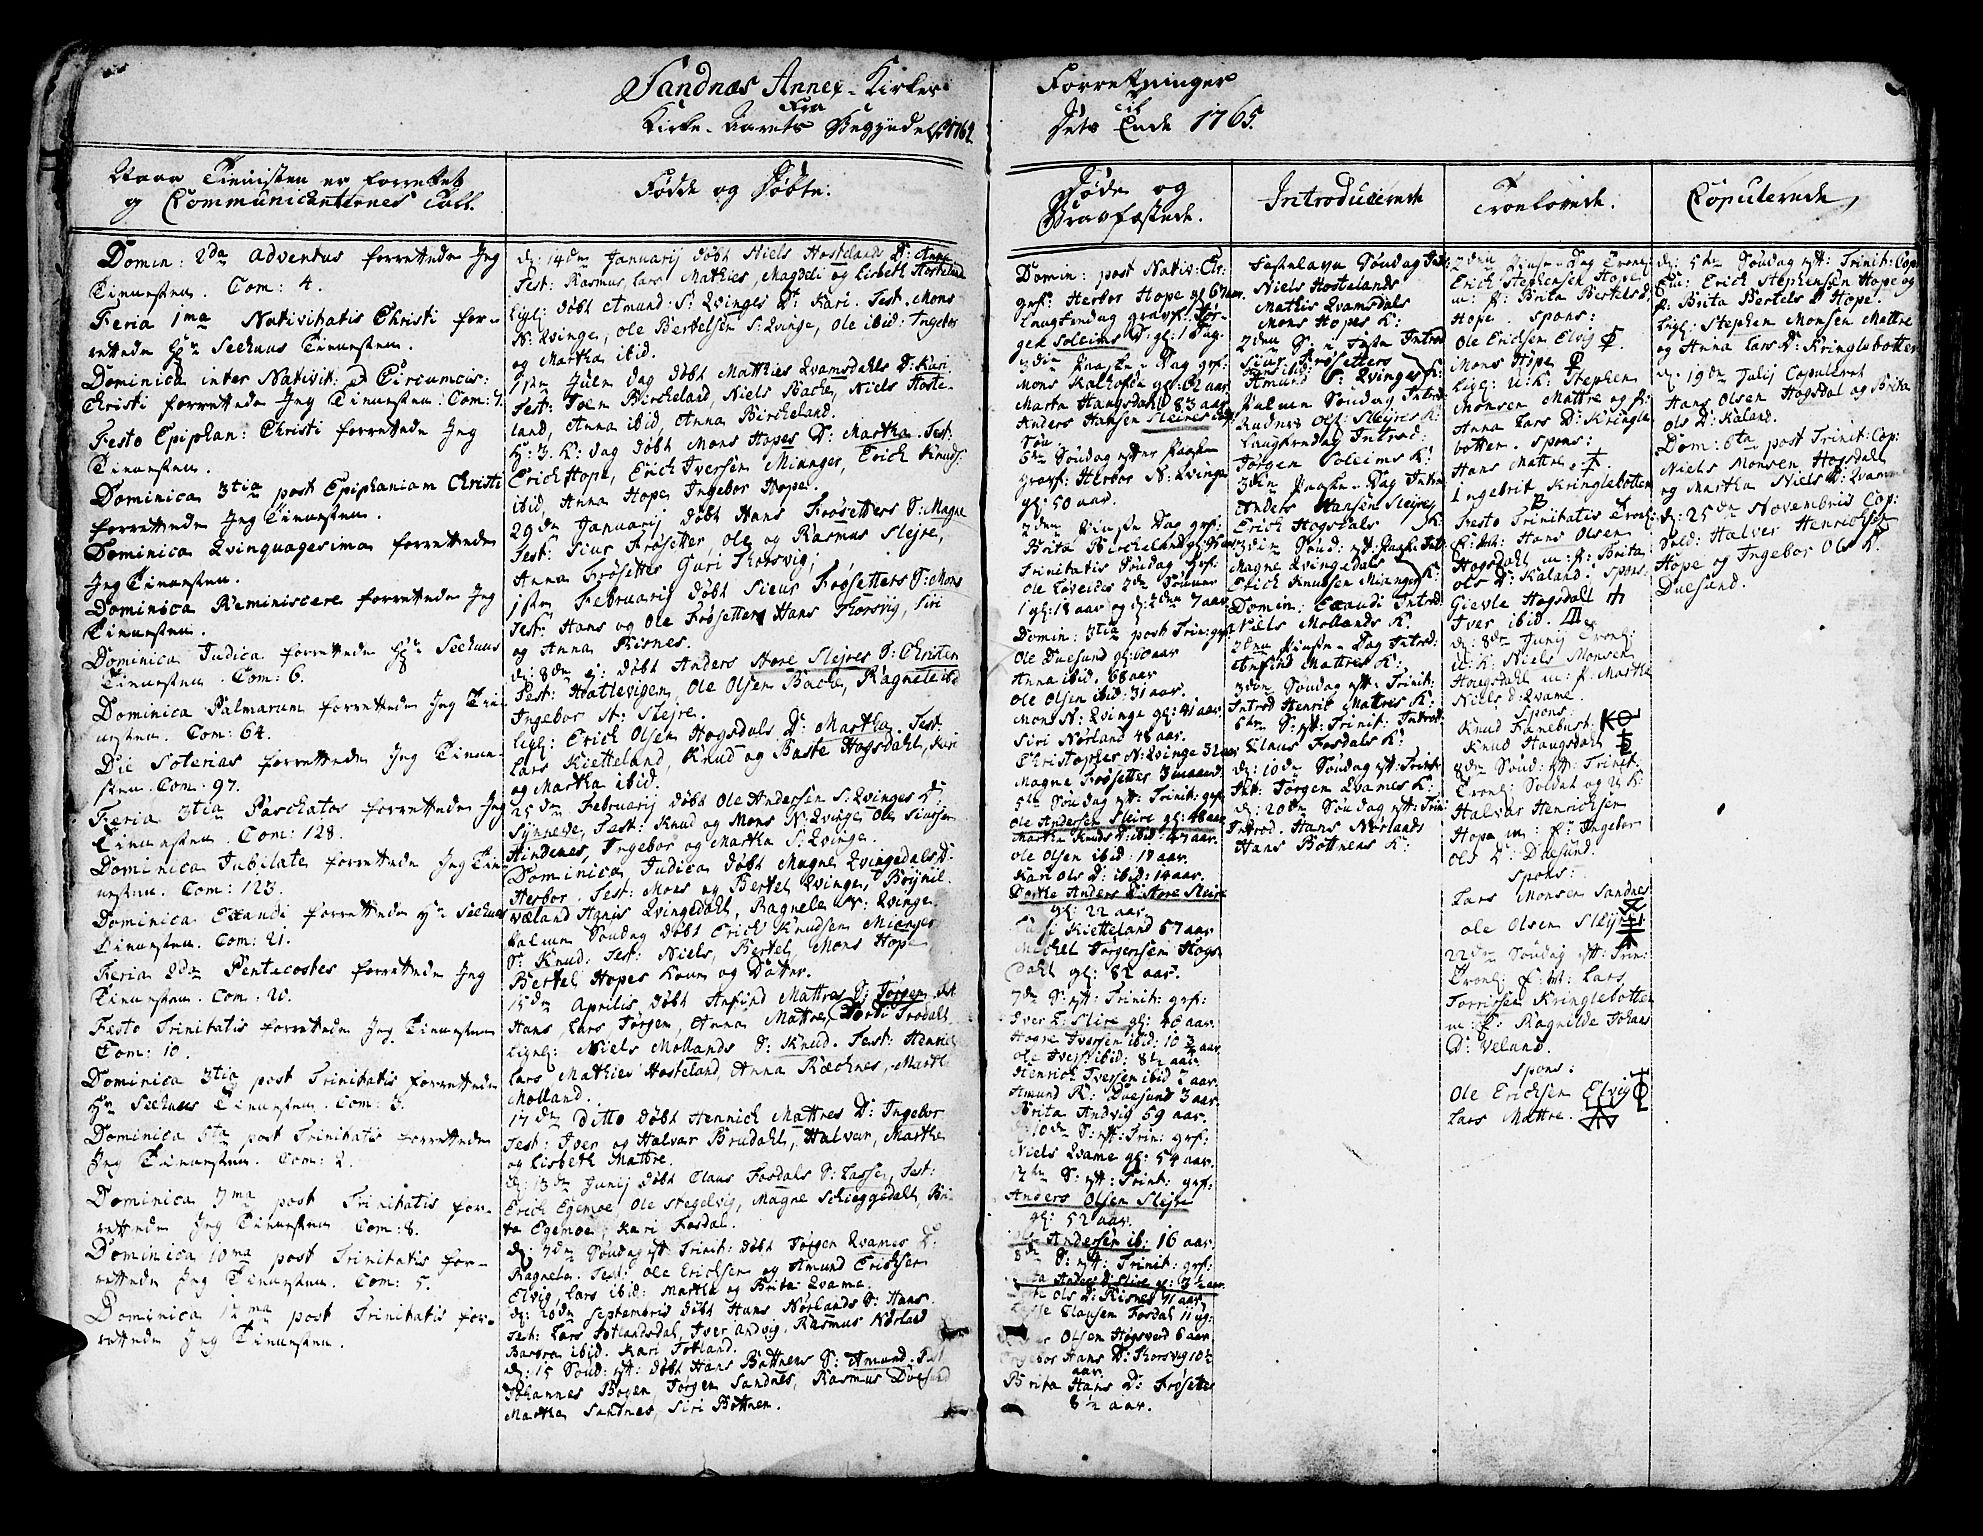 Sandnæs Annex-Kirkes Forretninger
Fra til
Kirke-Aarets Begyndelse 1764. Dets Ende 1765.
Naar Tienisten er forrettet
og Communicanternes Tall.
Domin: 2da Adventus forrettede Jeg
Tienesten. Com: 4.
Feria 1ma Nativitatis Christi for-
rettede Hr Seehuus Tienesten.
Dominica inter Nativit: et Circumcis:
Christi forrettede Jeg Tienesten. Com:
Festo Epiphan: Christi forrettede Jeg
Tienesten.
Dominica 3tia post Epiphaniam Christi
forrettede Jeg Tienesten.
Dominica Qvinquagesima forrettede
Jeg Tienesten.
Dominica Reminiscere forrettede Jeg
Tienesten.
Dominica Judica forrettede Hr Seehuus
Tienesten. Com: 6.
Dominica Palmarum forrettede Jeg Tie-
nesten. Com: 64.
Die Soterias forrettede Jeg Tienes-
ten. Com: 97.
Feria 3tia Paschatos forrettede Jeg
Tienesten. Com: 128.
Dominica Jubilate forrettede Jeg Tie-
nesten. Com: 123.
Dominica Exaudi forrettede Hr Seehuus
Tienesten. Com: 21.
Feria 2da Pentecostes forrettede Jeg
Tienesten. Com: 20.
Festo Trinitatis forrettede Jeg Tienesten
Com: 10.
Dominica 3tia post Trinitatis forrettede
Hr Seehuus Tienesten. Com: 3.
Dominica 5ta post Trinitatis forrettede
Jeg Tienesten. Com: 2.
Dominica 7ma post Trinitatis for-
rettede Jeg Tienesten Com: 8.
Dominica 10ma post Trinitatis for-
rettede Jeg Tienesten. Com: 5.
Dominica 12ma post Trinitatis for-
rettede Jeg Tienesten.
Fødde og Døbte:
d: 14de Januarij døbt Niels Hostelands D: Anne
Test: Rasmus, Lars Mathies, Magdeli og Lisbeth Hosteland
ligl: døbt Amund S: Qvinges D: Kari. Test. Mons
N: Qvinge, Ole Bertelsen S: Qvinge, Ole ibid: Ingebor
og Martha ibid.
1ste Jule dag døbt Matthies Qvamsdahls D: Kari
Test: Joen Birkeland, Niels Bache, Niels Hoste-
land, Anna ibid, Anna Birkeland.
H: 3. K: Dag døbt Mons Hopes D: Martha. Test.
Erich Hope, Erich Iversen Mianger, Erich Knuds:
ibid, Anna Hope, Ingebor Hope.
29de Januarij døbt Hans Frøsetters S: Magne
Test: Siur Frøsetter, Ole og Rasmus Slejre,
Anna Frøsetter Guri Thorsvig.
1ste Februarij døbt Sieur Frøsetters S: Mons
Test: Hans og Ole Frøsetter, Hans Thorsvig, Siri
og Anna Risnes.
d: 8de ej: døbt Anders Store Slejres S: Christen
Test: Hatlevigen, Ole Olsen Bache, Ragnele ibid
Ingebor St: Slejre.
ligl: Erich Olsen Hogsdals D: Martha. Test
Lars Kietteland, Knud og Baste Hogsdahl, Kari
og Martha ibid.
25de Februarij døbt Ole Andersen S: Qvinges D:
Synneve, Test: Knud og Mons N: Qvinge, Ole Siursen
Hindenes, Ingebor og Martha S: Qvinge.
Dominica, Judica døbt Magne Qvingedals D:
Herbor. Test: Mons og Bertel Qvinge, Brynil.
Væland Agnis Qvingedahl, Ragnele N: Qvinge.
Palme Søndag døbt Erich Knudsen Mianger
S: Knud. Test: Niels, Bertel, Mons Hope
Bertel Hopes Koene og Datter.
15de Aprilis døbt Anfind Mattres S: Jørgen, Test
Hans, Lars Jørgen, Anna Mattre, Dorti Frodahl.
lignel: Niels Mollands S: Knud. Test: Henrich
Lars Mathies Hosteland, Anna Ræchnes, Martha
Molland.
17de Ditto døbt Hennich Mattres D: Ingebor
Test: Iver og Halvar Brudahl, Halvar, Martha
og Lisbeth Mattre.
d: 13de Junij døbt Claus Fosdals S: Lasse, Test:
Erich Egemoe, Ole Stegelvig, Magne Schieggedall, Bri-
te Egemoe, Kari Fosdal.
d: 7de Søndag eft: Trinit: døbt Jørgen Qvames D:
Ragnela. Test: Ole Erichsen og Amund Erichsen
Elvig, Lars ibid: Martha og Brita Qvame.
d: 20de Septembris døbt Hans Nørlands S: Hans.
Test: Lars Totlandsdal, Iver Andvig, Rasmus Nørland
Barbra ibid. Kari Totland.
d: 15 Sønd: eft: døbt Hans Bøttnens S: Amund. Test
Johannes Bogen, Jørgen Sandnes, Rasmus Duesund
Martha Sandnes, Siri Bøttnen.
Døde og
Gravfæstede.
Domin: post Nativ: Chr:
grf: Herbor Hope gl 67 aar.
Langfredag gravf: Jør-
gen Soleims D: gl: 1 Dag.
3die Paaske-Dag grf:
Mons Kalhofde gl: 62 aar
Marta Haugsdahl 83 aar
Anders Hansen Sleires
6te Søndag efter Paaske
gravf: Herbor N: Qvinge
gl: 50 aar.
2den Pinse Dag grf:
Brita Birkeland gl:
Trinitatis Søndag grf:
Ole Løveides 2de Sønner
1 gl: 18 aar og d: 2den 7 aar
Domin: 3tia post Trin: grf:
Ole Duesund gl: 60 aar
Anna ibid. 68 aar
Ole Olsen ibid: 31 aar.
Mons N: Qvinge gl: 41 aar
Siri Nørland 48 aar.
Christopher N: Qvinge 32 aar
Magne Frøsetter 3 maaned
5te Søndag eft: Trinit: grf:
Ole Andersen Sleire gl: 48 aar
Martha Knuds D: ibid: 47 aar.
Ole Olsen ibid: 19 aar.
Kari Ols D: ibid: 14 aar.
Dorthe Anders D: Store Sleire
gl: 22 aar.
Kietteland 67 aar
Michel Jørgensen Hogs-
dahl gl: 82 aar.
7de S: eft: Trinit: grf:
Iver L: Slire gl: 40 aar
Iversen ibid: 10 3/4 aar
Ole Ivers ibid: 8 1/2 aar
Henrich Iversen ibid 7 aar.
Amund R: Duesund 3 aar.
Brita Andvig 59 aar.
d: 10de S: eft: Trin: grf:
Niels Qvame gl: 54 aar.
12te S: eft: Trinit: grf:
Anders Olsen Slejre
gl: 52 aar.
Andersen ib: 16 aar.
8de S: eft: Trinit: grf:
Anders D: Slire gl: 3 1/2 aar
Ols D: Risnes 11 aar
Lasse Clausen Fosdal 11 ug:
Olsen Høgsveid 6 aar.
Ingebor Hans D: Thorsvig 10 1/2
aar.
Brita Hans D: Frøsetter
8 1/2 aar.
Introducerede
Fastelavn Søndag Intr:
Niels Hostelands
Mathis Qvamsdals
Mons Hopes K:
2den S: i Faste Introd
Siur Frøsetters
Hans ibid:
Amund S: Qvinges K:
Palme Søndag Introd:
Rasmus Ols: Slejres K:
Langfredag Introd:
Jørgen Soleims K:
3die Paaske-Dag Intro
Anders Hansen Slejre
Erich Hogsdals K:
3die Sønd: eft: Paask: Intr:
Magne Qvingedals
Erich Knutsen Mianger K:
Domin: Exaudi Introd
Niels Mollands K:
2den Pinse-Dag Introd:
Anfind Mattres K:
3die Søndag eft: Trinit:
Introd Henric Mattres K:
6te S: eft: Trinit: Introd
Claus Fosdals K:
d: 10de Søndag eft: Trinit:
Int: Jørgen Qvames K:
d: 20de Søndag eft: Trin:
Introd. Hans Nørlands
Hans Bøttnens K:
Troelovede.
2den Pinse-Dag Troel:
Erich Stephensen Hope
m: P: Brita Bertelsd:
Hope. Spons:
Ole Erichsen Elvig
Mons Hope
Ligl: U:K: Stephen
Monsen Mattre og P:
Anna Lars D: Kringle-
botten. Spons:
Hans Mattre.
Ingebrit Kringlebotten
B
Festo Trinitatis Troel:
Hans Olsen
Hogsdahl m: P: Brita
Ols D: Kaland. Spons:
Gievle Hogsdahl
Iver ibid.
d: 8de Junij Troel:
U:K: Niels Monsen
Hougsdahl m: P: Martha
Niels D: Qvame.
Spons.
Knud Fanebust. KO
Knud Haugsdahl
8de Sønd: eft: Trinit:
Troel: Soldat og U: K:
Halvar Henrichsen
Hope m: P: Ingebor
Ols D: Duesund.
Spons:
Lars Monsen Sandnes
Ole Olsen Sleij
22de Søndag eft: Trin:
Troel: E: M: Lars
Torrisen Kringlebotten
m: P: Ragnilde Johans
D: Veland.
Spons:
Ole Erichsen Elvig
Lars Mattre.
Copulerede
d: 5te Søndag eft: Trinit: Cop
Erich Stephensen Hope og
P. Brita Bertels D Hope.
ligl: Stephen Monsen Mattre
og Anna Lars D: Kringlebotten
d. 19de Julij Copuleret
Hans Olsen Hogsdal og Brita
Ols D: Kaland.
Dom: 6ta post Trinit: Cop:
Niels Monsen Hogsdal
og Martha Niels D: Qvame
d: 25de Novembris Cop:
Sold: Halver Henrichsen
Hope og Ingebor Ols D:
Duesund.